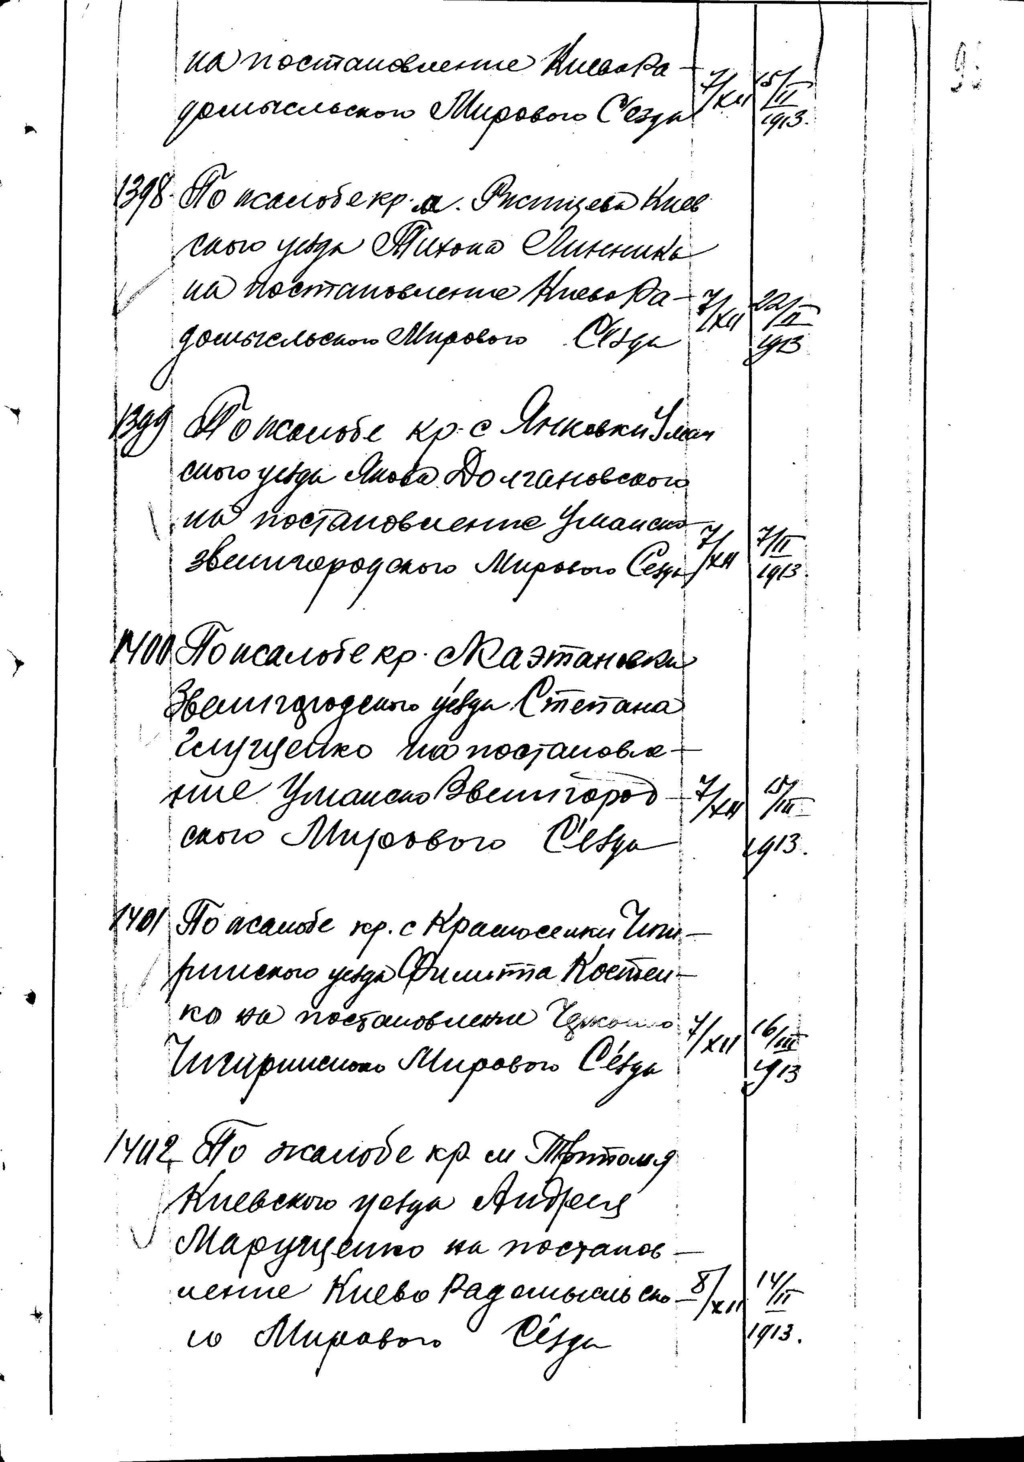 на постановление Киево Ра-
домысльского Мирового Съезда 7/XII 15/II 1913.
1398. По жалобе кр. м. Ржищева Киев
ского уезда Тихона Линника
на постановление Киево Ра-
домысльского Мирового Съезда 7/XII 22/II 1913
1399 По жалобе кр. с Янковки Уман
ского уезда Якова Долгановского
на постановление Уманско
Звенигородского Мирового Съезда 7/XII 7/II 1913.
1400 По жалобе кр. с Каэтановки
Звенигородского уезда Степана
Глущенко на постановле-
ние Уманско Звенигород-
ского Мирового Съезда 7/XII 15/III 1913.
1401 По жалобе кр. с Красноселки Чиги-
ринского уезда Филиппа Костен-
ко на постановление
Чигиринского Мирового Съезда 7/XII 16/III 1913
1402 По жалобе кр. м
Киевского уезда Андрея
Марущенко на постанов-
ление Киево Радомысльско-
го Мирового Съезда 8/XII 14/II 1913.